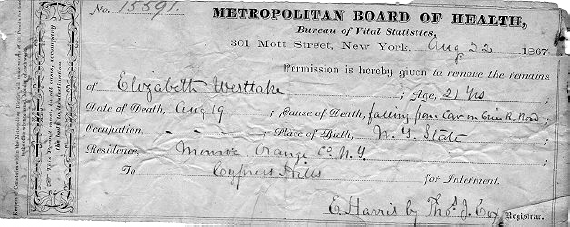 No. 15591. METROPOLITAN BOARD OF HEALTH,
Bureau of Vital Statistics,
301 Mott Street, New York. Aug 22 1867
Permission is hereby given to remove the remains
of Elizabeth Westlake ; Age, 21 Yrs ;
Date of Death, Aug 19 ; Cause of Death, falling from Car on Erie R. Road ;
Occupation. - - ; Place of Birth, N. Y. State ;
Residence. Monroe Orange Co. N. Y.
To Cypress Hills for Interment.
E. Harris by Thos. J. Cox Registrar.